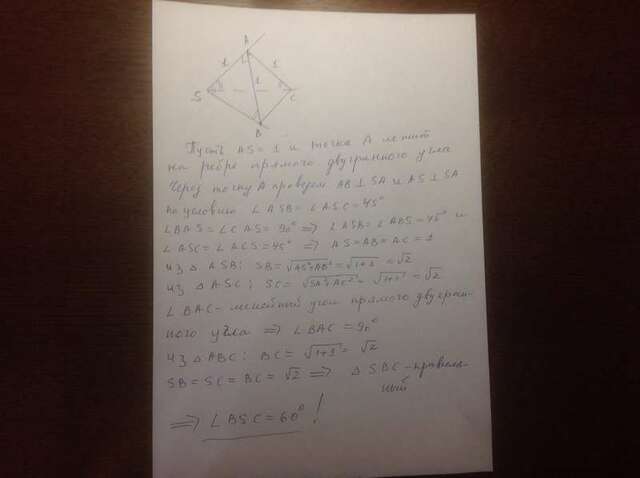 A
1 1
S 1 C
B
Пусть AS = 1 и точка A лежит
на ребре прямого двугранного угла
Через точку A проведём AB ⊥ SA и AS ⊥ SA
по условию ∠ASB = ∠ASC = 45°
∠BAS = ∠CAS = 90° ⟹ ∠ASB = ∠ABS = 45° и
∠ASC = ∠ACS = 45° ⟹ AS = AB = AC = 1
из △ASB: SB = √AS²+AB² = √1+1 = √2
из △ASC: SC = √SA²+AC² = √1+1 = √2
∠BAC - линейный угол прямого двугран-
ного угла ⟹ ∠BAC = 90°
из △ABC: BC = √1+1 = √2
SB = SC = BC = √2 ⟹ △SBC - правиль-
ный
⟹ ∠BSC = 60° !